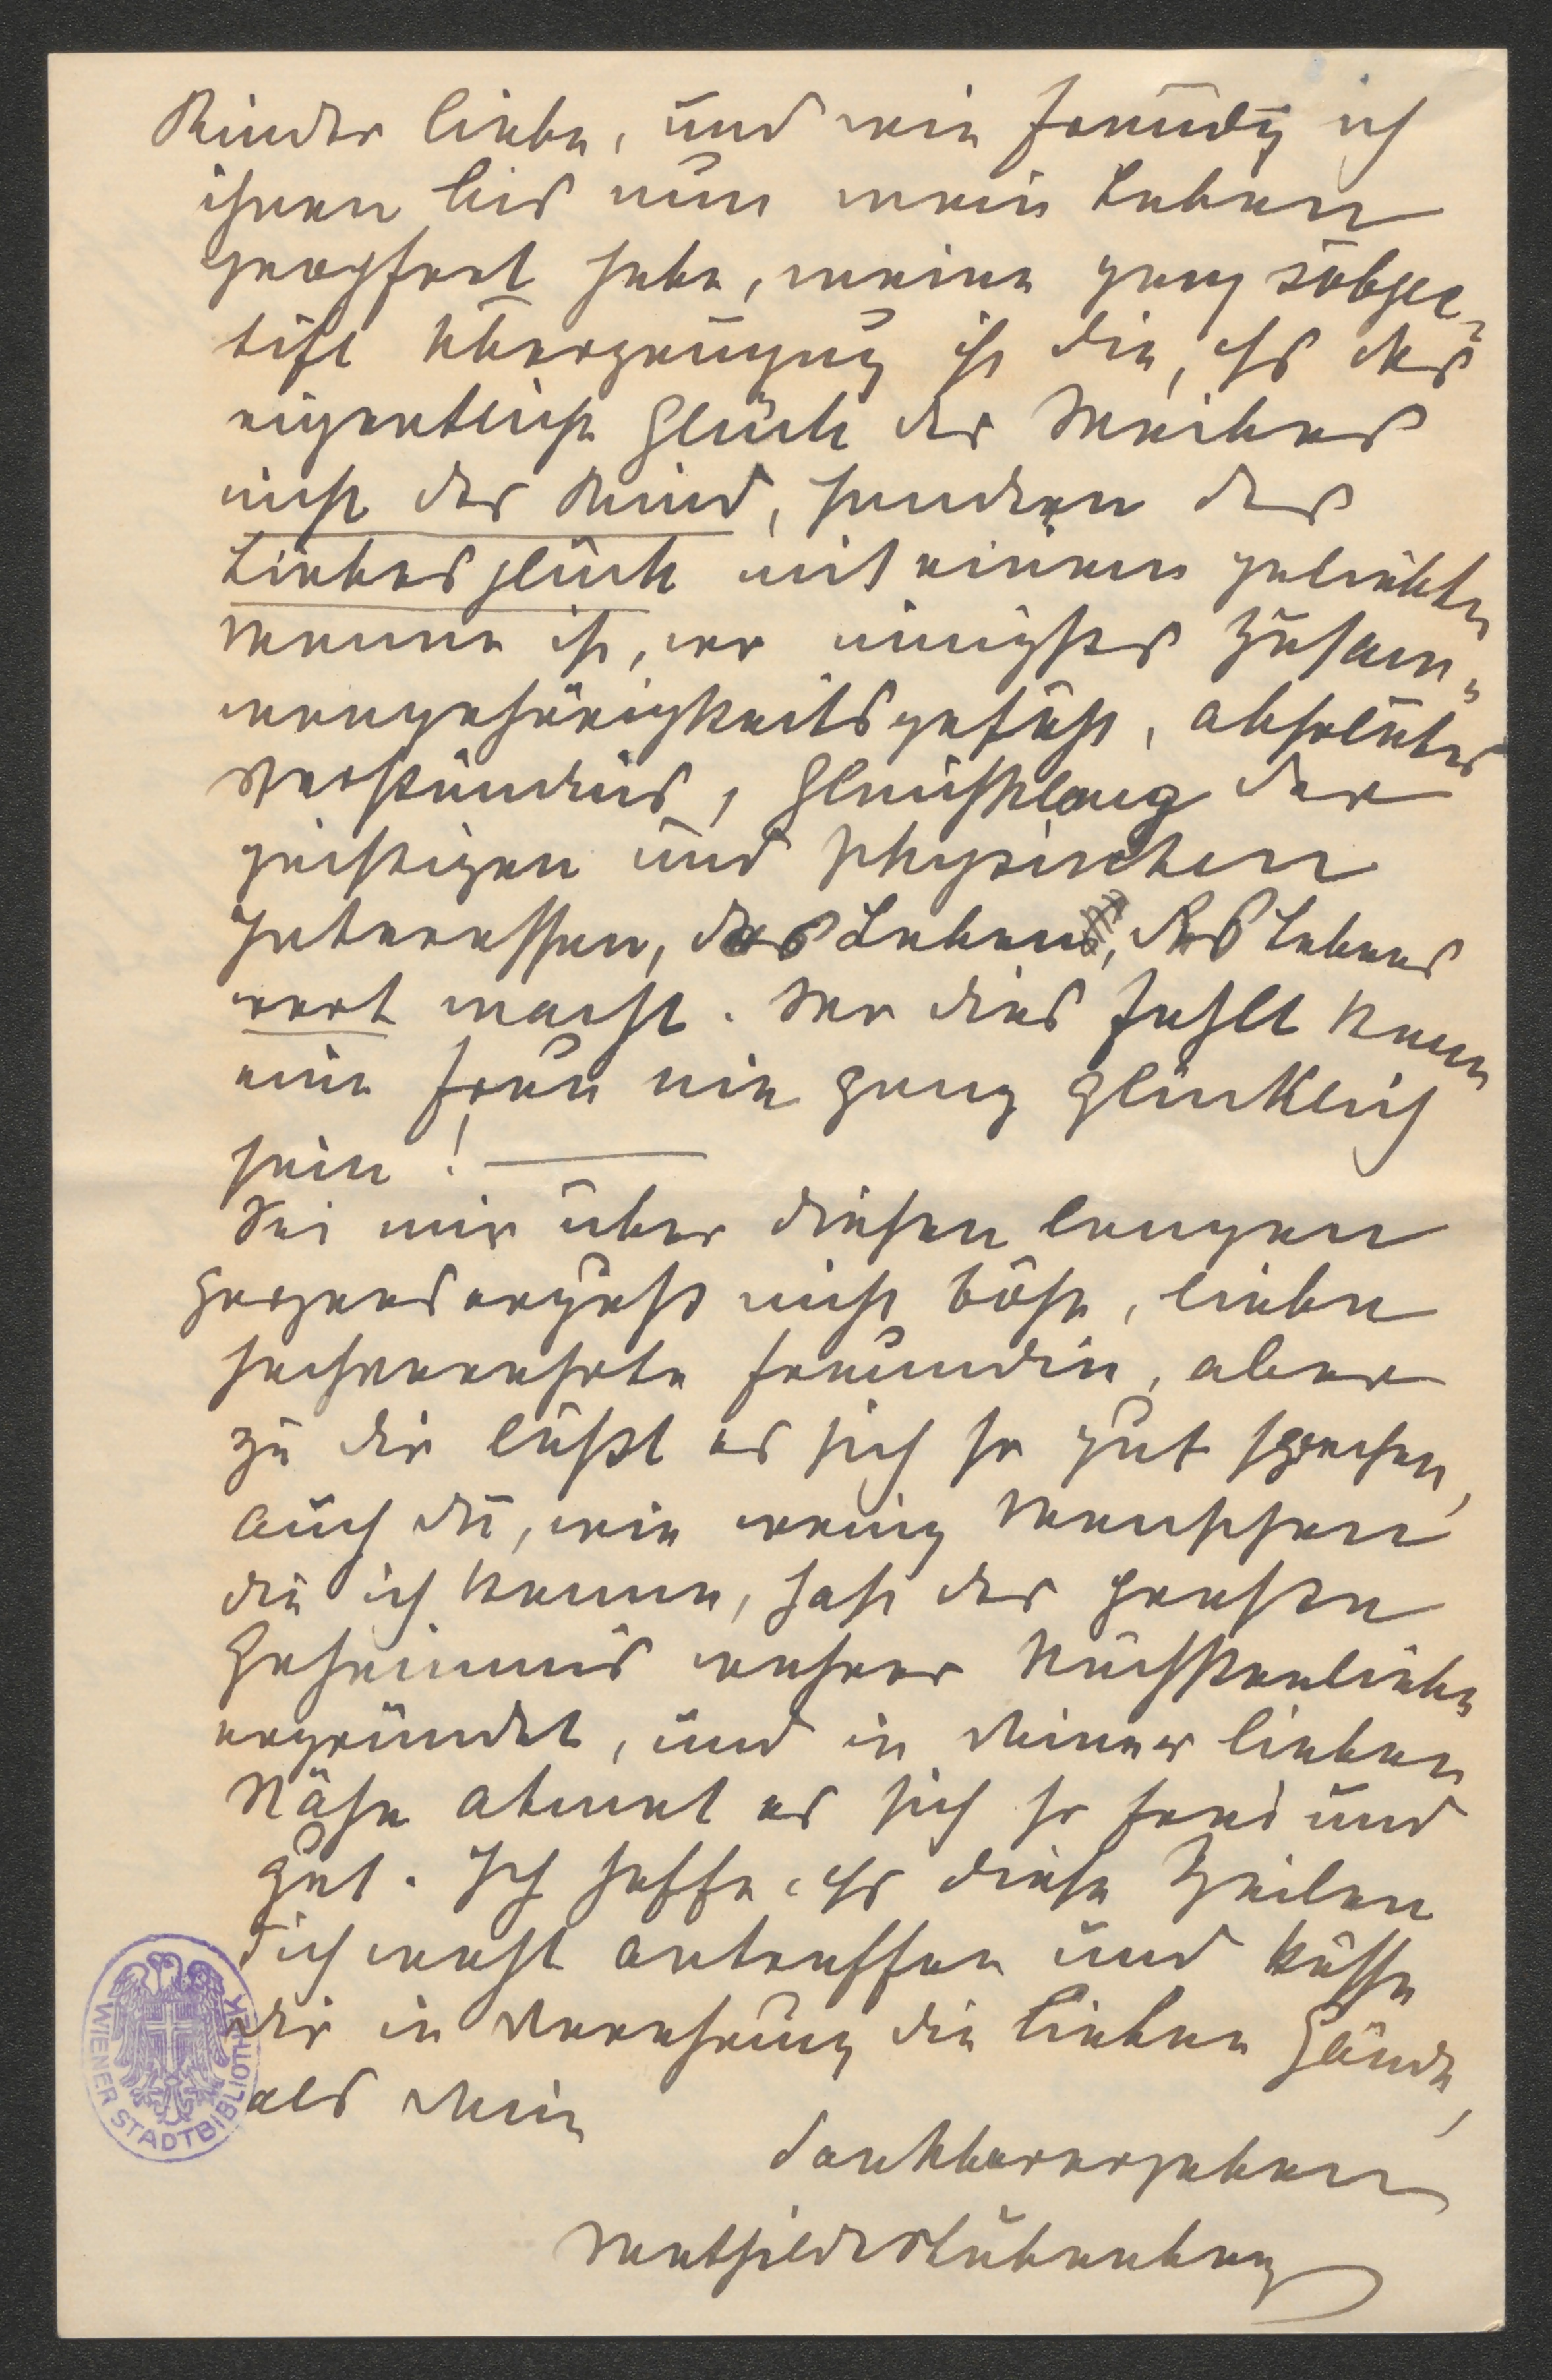 Kinder liebe, und wie freudig ich
ihnen bis nun mein Leben
geopfert habe, meine ganz subjec-
tife Überzeugung ist die, ds das
eigentliche Glück des Weibes
nicht das Kind, sondern das
Liebesglück mit einem geliebten
Manne ist, wo innigstes Zusam-
mengehörigkeitsgefühl, absolutes
Verständnis, Gleichklang der
geistigen und physischen
Interessen, das Leben, des Lebens
wert macht. Wo dies fehlt kann
eine Frau nie ganz glücklich
sein! —
Sei mir über diesen langen
Herzenserguß nicht böse, liebe
hochverehrte Freundin, aber
zu dir läßt es sich so gut sprechen,
auch du, wie wenig Menschen
die ich kenne, hast das große
Geheimnis wahrer Nächstenliebe
ergründet, und in deiner lieben
Nähe atmet es sich so frei und
gut. Ich hoffe, ds diese Zeilen
dich wohl antreffen und küsse
dir in Verehrung die lieben Hände,
als deine
dankbarergeben
Mathilde Stubenberg
WIENER STADTBIBLIOTHEK